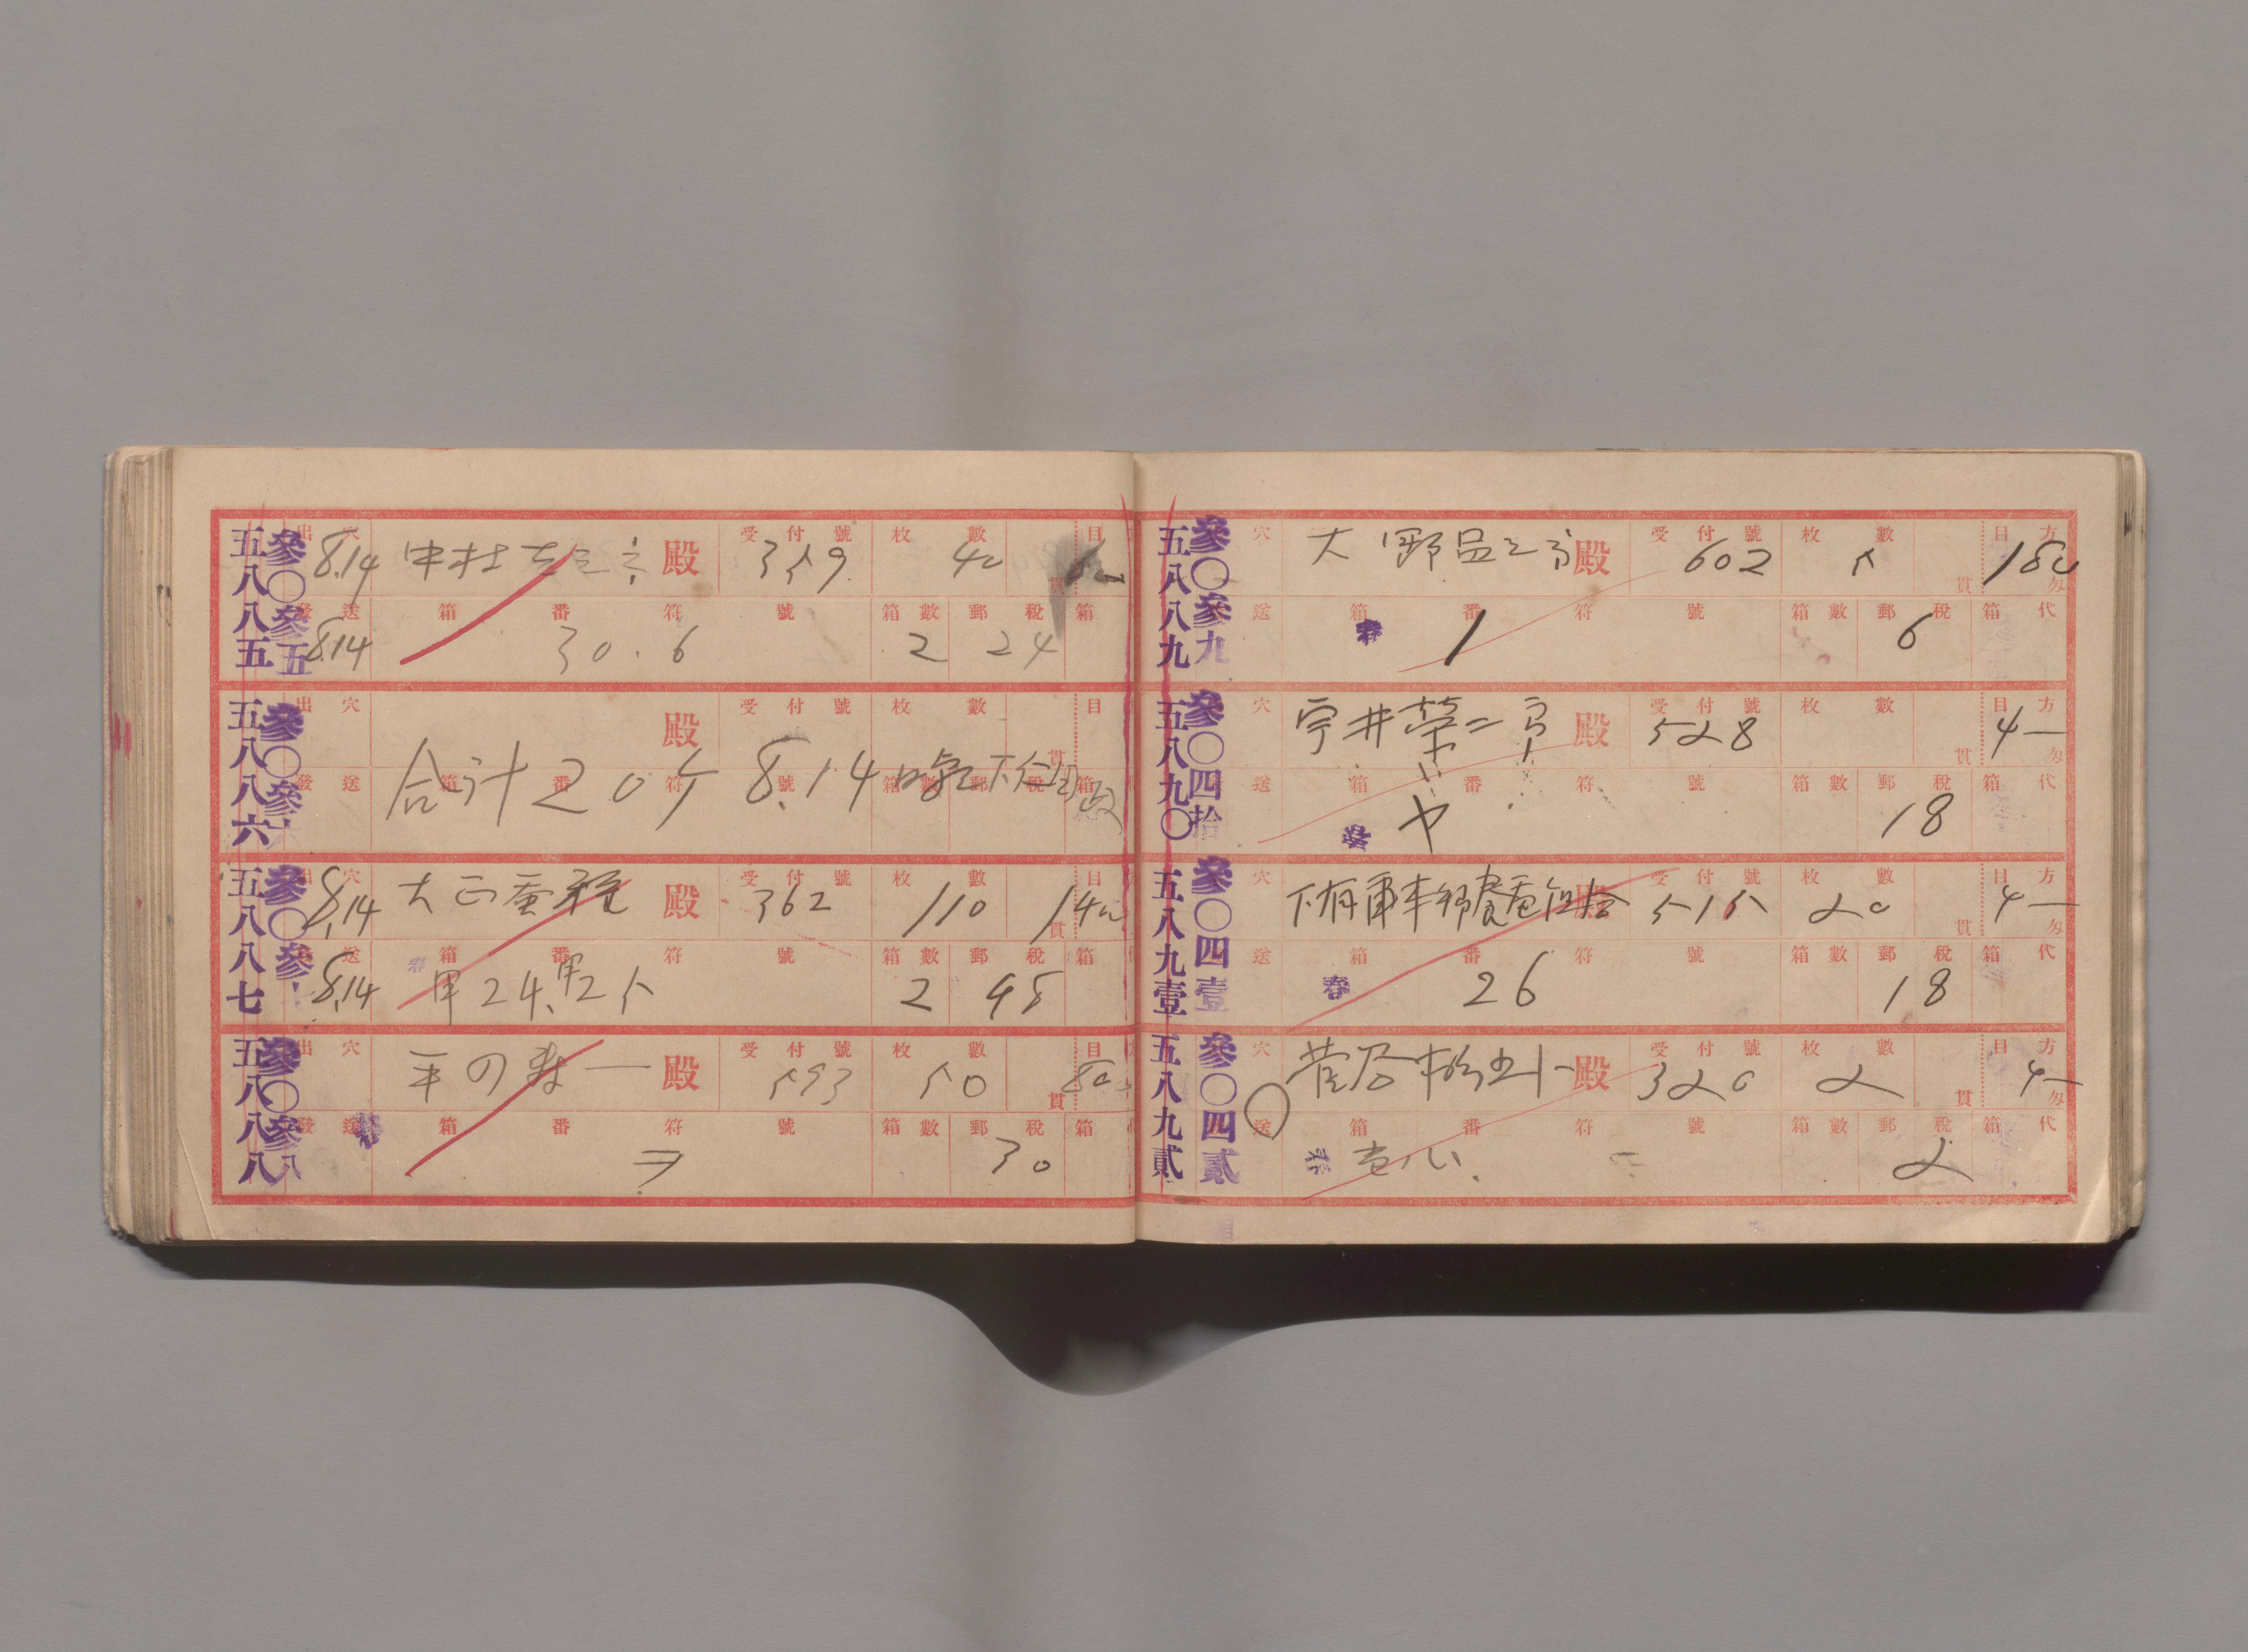 五八八五 參〇參五
出穴 8.14 中村 殿 受付號 359 枚數 40 貫 目
發送 8.14 箱番符號 30.6 箱數 2 郵稅 24 箱
五八八六 參〇參
出穴 殿 受付號 枚數 貫 目
發送 箱番符號 箱數 郵稅 箱
合計20ケ 8.14 晩 下仁田
五八八七 參〇參
出穴 8.14 大正蚕種 殿 受付號 362 枚數 110 貫 目 140
發送 8.14 箱番符號 甲24.甲25 箱數 2 郵稅 98 箱
五八八八 參〇參八
出穴 一 殿 受付號 593 枚數 50 貫 目 800
發送 春 箱番符號 箱數 郵稅 30 箱
五八八九 參〇參九
穴 大野 殿 受付號 602 枚數 5 貫 目方 180 匁
送 春 箱番符號 1 箱數 郵稅 6 箱代
五八九〇 參〇四拾
穴 宇井榮二 殿 受付號 528 枚數 貫 目方 4 一 匁
送 箱番符號 箱數 郵稅 18 箱代
五八九壹 參〇四壹
穴 殿 受付號 515 枚數 20 貫 目方 4 一 匁
送 春 箱番符號 26 箱數 郵稅 18 箱代
五八九貳 參〇四貳
穴 殿 受付號 320 枚數 2 貫 目方 4 一 匁
送 春 箱番符號 箱數 郵稅 2 箱代